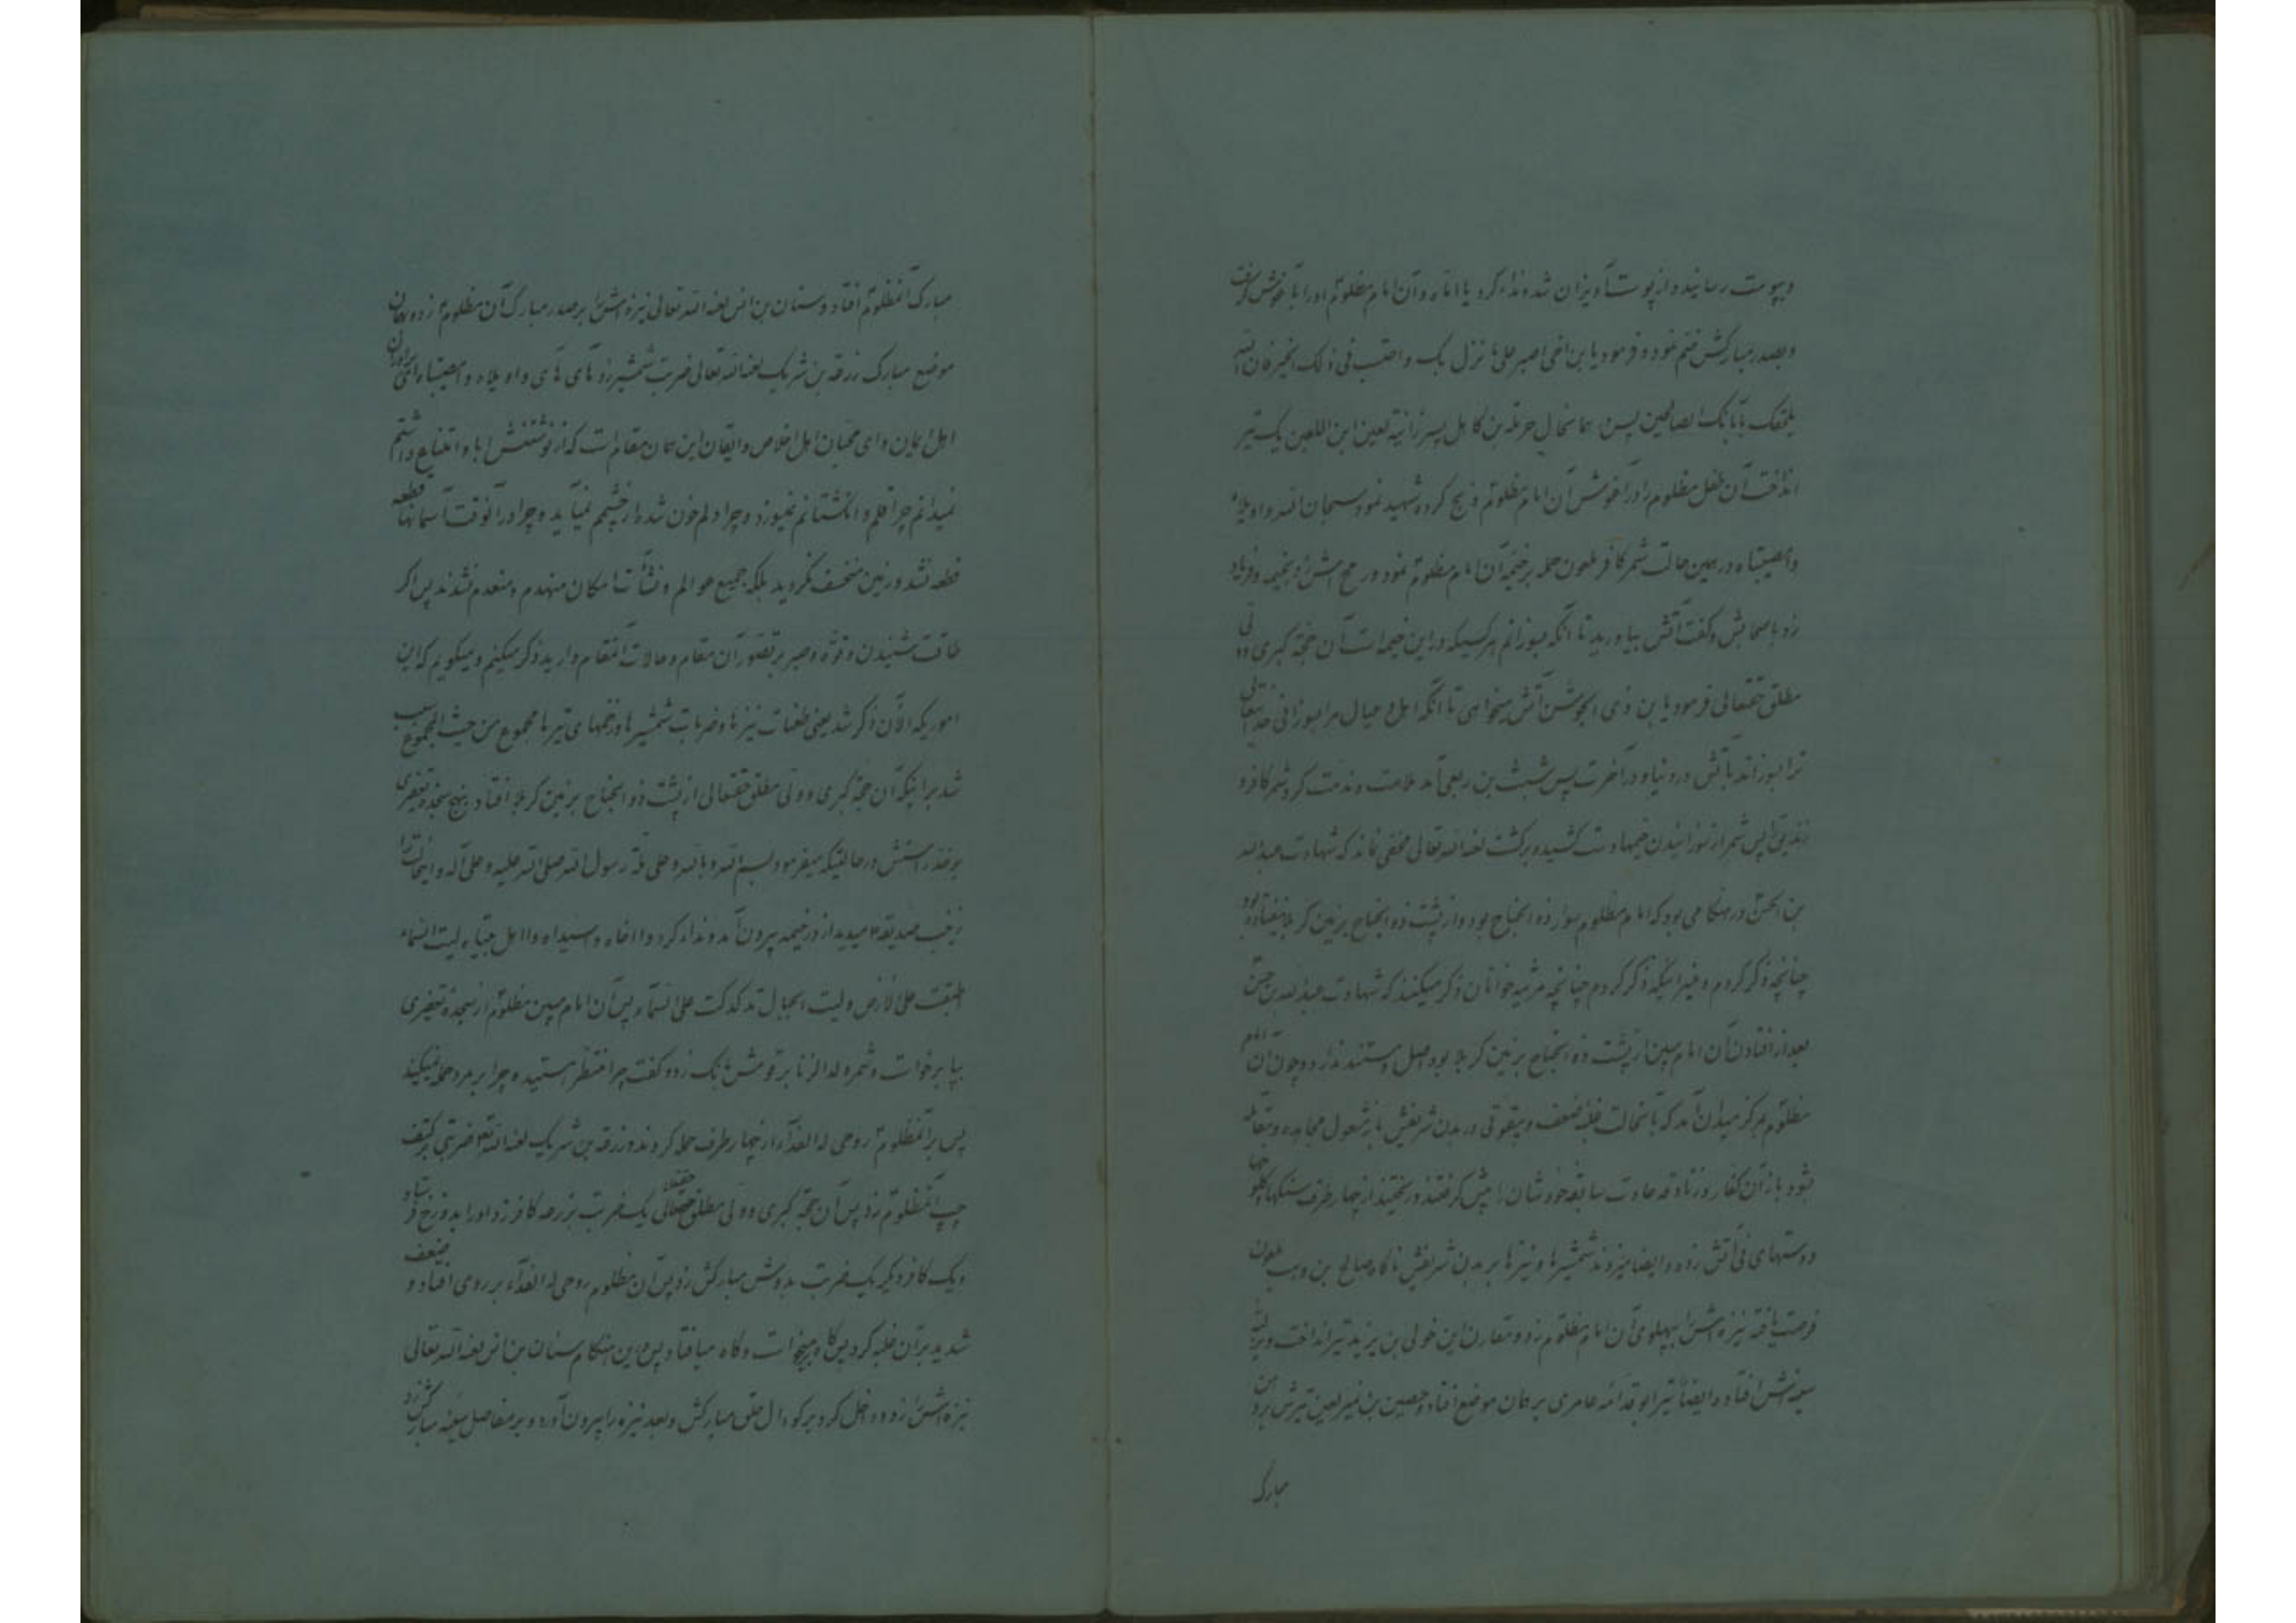 وبپوست رسانیده از پوست آویزان شد و نداء کرد یا اماه و آن امام مظلوم او را بآغوش گرفت
و بصدر مبارکش ضم نمود و فرمود یا بن اخی اصبر علی ما نزل بک و احتسب فی ذلک الخیر فان الله
یلحقک بآبائک الصالحین پس بهمانحال حرملة بن کاهل پسر زانیه لعین ابن اللعین یک تیر
انداخت آن طفل مظلوم را در آغوش آن امام مظلوم ذبح کرده شهید نمود سبحان الله واویلاه
وامصیبتاه در همین حالت شمر کافر ملعون حمله برخیمه آن امام مظلوم نمود و رمح اش زد بخیمه و فریاد
زد باصحابش و گفت آتش بیاورید تا آنکه بسوزانم هر کسیکه در این خیمه است آن حجة کبری و ولی
مطلق حقتعالی فرمود یا بن ذی الجوشن آتش میخواهی تا آنکه اهل و عیال مرا بسوزانی خدایتعالی
ترا بسوزاند بآتش در دنیا و در آخرت پس شبث بن ربعی آمد ملامت و مذمت کرد شمر کافر و
زندیق را پس شمر از سوزانیدن خیمها دست کشید و برگشت لعنه الله تعالی مخفی نماند که شهادت عبدالله
بن الحسن در هنگامی بود که امام مظلوم سوار ذو الجناح بود و از پشت ذو الجناح بزمین کربلا نیفتاده بود
چنانچه ذکر کردم و غیر اینکه ذکر کردم چنانچه مرثیه خوانان ذکر میکنند که شهادت عبدالله بن حسن
بعد از افتادن آن امام مبین از پشت ذو الجناح بزمین کربلا بود اصل و مستند ندارد و چون آن امام
مظلوم بمرکز میدان آمد که با آنحالت غلبه ضعف و بیقوتی در بدن شریفش باز مشغول مجاهده و مقاتله
شود باز آن کفار و زنادقه عادت سابقه خودشان را پیش گرفتند و ریختند از چهار طرف سنگها کلوخها
و دستهای نی آتش زده و ایضا میزدند شمشیرها و نیزها بر بدن شریفش ناگاه صالح بن وهب ملعون
فرصت یافته نیزه اش را بپهلوی آن امام مظلوم زد و مقارن این خولی بن یزید تیر انداخت و بر لبه
سینه اش افتاد و ایضا تیر ابو قدامه عامری بر همان موضع افتاد و حصین بن نمیر لعین تیرش بر دهن
مبارک
مبارک آنمظلوم افتاد و سنان بن انس لعنه الله تعالی نیزه اش را بر صدر مبارک آن مظلوم زد و بهمان
موضع مبارک زرقة بن شریک لعنه الله تعالی ضربت شمشیر زد های های واویلاه وامصیبتاه ای برادران
اهل ایمان و ای محبان اهل اخلاص و ایقان این همان مقام است که از نوشتنش اباء و امتناع داشتم
نمیدانم چرا قلم و انگشتانم نمیسوزد و چرا دلم خون شده از چشمم نمیآید و چرا در آنوقت آسمانها قطعه
قطعه نشد و زمین منخسف نگردید بلکه جمیع عوالم و نشأت امکان منهدم و منعدم نشدند پس اگر
طاقت شنیدن و قوّه و صبر بر تصوّر آن مقام و حالات آنمقام دارید ذکر میکنیم و میگویم که این
امور یکه الآن ذکر شد یعنی طعنات نیزها و ضربات شمشیرها و زخمهای تیرها مجموع من حیث المجموع سبب
شد بر اینکه آن حجة کبری و ولی مطلق حقتعالی از پشت ذو الجناح بزمین کربلا افتاد بنهج سجده تعفیری
بر خد راستش در حالتیکه میفرمود بسم الله و بالله و علی ملة رسول الله صلی الله علیه و علی آله و اینحالت را
زینب صدیقه ع میدید از در خیمه بیرون آمد و نداء کرد وا اخاه وا سیداه وا اهل بیتاه لیت السماء
اطبقت علی الارض و لیت الجبال تدکدکت علی السماء پس آن امام مبین مظلوم از سجده تعفیری
بپا برخواست و شمر ولد الزنا بر قومش بانک زده گفت چرا منتظر هستید و چرا بر مرد حمله نمیکنید
پس بر آنمظلوم روحی له الفداء از چهار طرف حمله کردند و زرقة بن شریک لعنه الله تع ضربتی بر کتف
چپ آنمظلوم زد پس آن حجة کبری و ولی مطلق حقتعالی یک ضربت بر زرعه کافر زد او را بدوزخ فرستاد
و یک کافر دیگر یک ضربت بدوش مبارکش زد پس آن مظلوم روحی له الفداء بر روی افتاد و ضعف
شدید بر آن غلبه کرد پس گاه میخواست و گاه میافتاد پس در این هنگام سنان بن انس لعنه الله تعالی
نیزه اش را زد و داخل کرد بر گودال حلق مبارکش و بعد نیزه را بیرون آورد و بر مفاصل سینه مبارکش زد